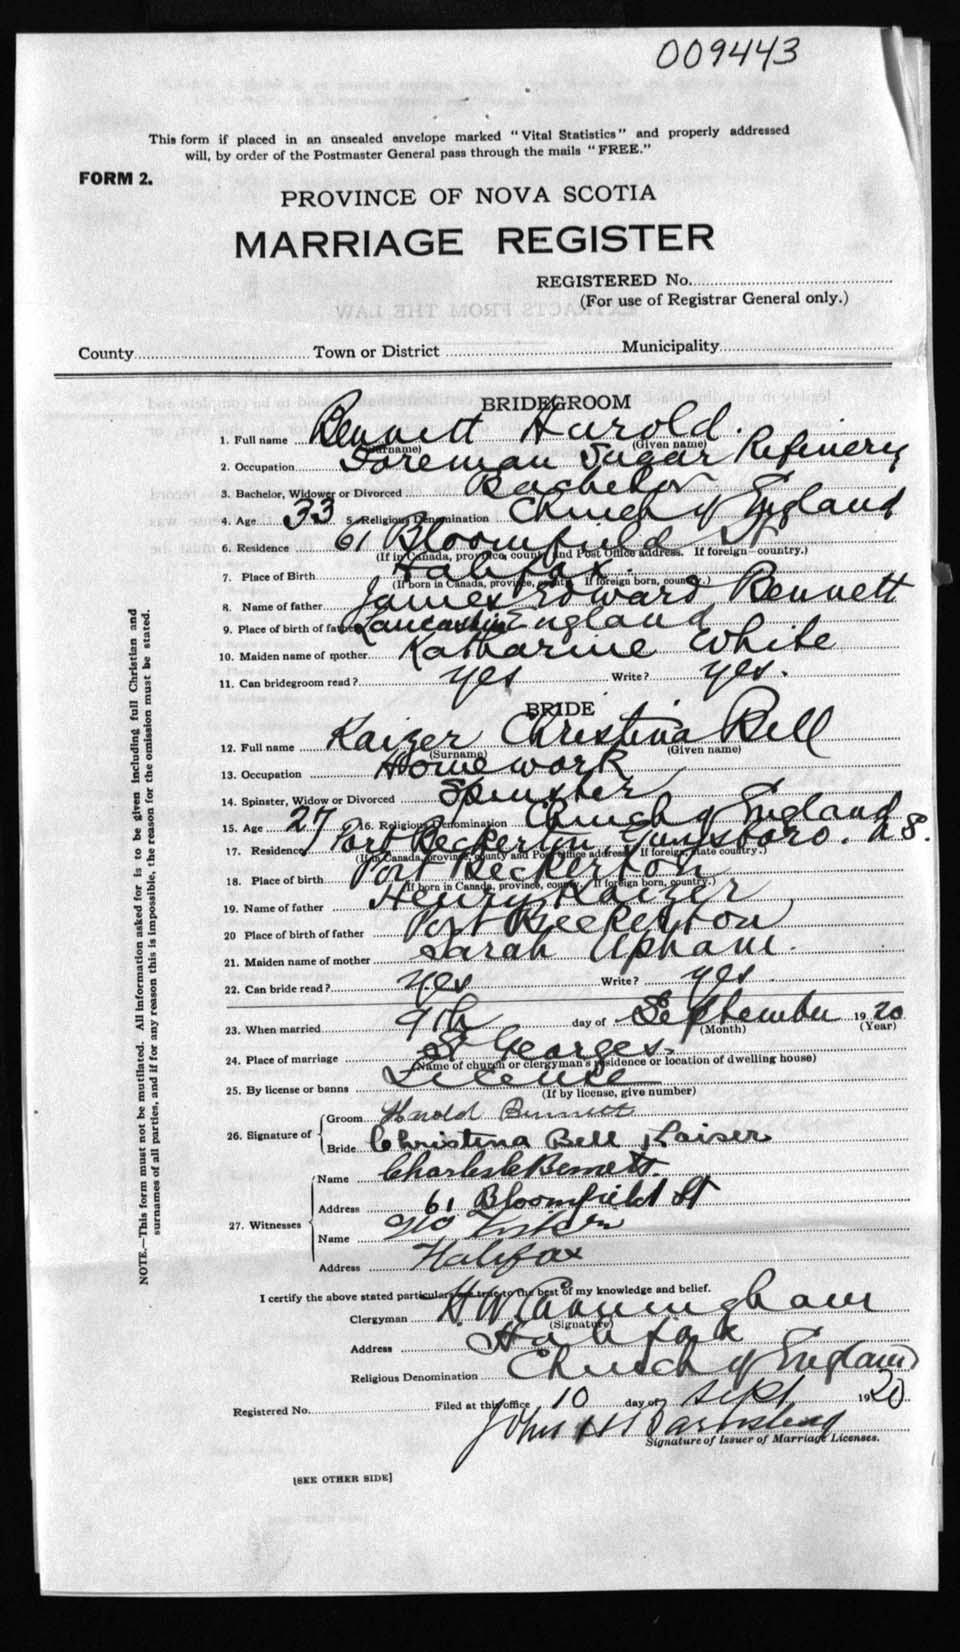 009443
This form if placed in an unsealed envelope marked "Vital Statistics" and properly addressed
will, by order of the Postmaster General pass through the mails "FREE."
FORM 2.
PROVINCE OF NOVA SCOTIA
MARRIAGE REGISTER
REGISTERED No.
(For use of Registrar General only.)
County Town or District Municipality
BRIDEGROOM
1. Full name Bennett Harold.
(Surname) (Given name)
2. Occupation Foreman Sugar Refinery
3. Bachelor, Widower or Divorced Bachelor
4. Age 33 5. Religious Denomination Church of England
6. Residence 61 Bloomfield St
(If in Canada, province, county and Post Office address. If foreign—country.)
7. Place of Birth Halifax.
(If born in Canada, province, county. If foreign born, country.)
8. Name of father James Edward Bennett
9. Place of birth of father Lancashire England
10. Maiden name of mother Katharine White
11. Can bridegroom read? yes Write? yes.
BRIDE
12. Full name Kaizer Christina Bell
(Surname) (Given name)
13. Occupation Homework
14. Spinster, Widow or Divorced Spinster
15. Age 27 16. Religious Denomination Church of England
17. Residence Port Beckerton, Guysboro. N.S.
(If in Canada, province, county and Post Office address. If foreign, state country.)
18. Place of birth Port Beckerton
(If born in Canada, province, county. If foreign born, country.)
19. Name of father Henry Kaizer
20 Place of birth of father Port Beckerton
21. Maiden name of mother Sarah Upham.
22. Can bride read? yes Write? yes
23. When married 9th day of September 1920
(Month) (Year)
24. Place of marriage St Georges.
(Name of church or clergyman's residence or location of dwelling house)
25. By license or banns License
(If by license, give number)
26. Signature of
Groom Harold Bennett
Bride Christina Bell Kaiser
27. Witnesses
Name Charles Bennett.
Address 61 Bloomfield St
Name
Address Halifax
I certify the above stated particulars are true to the best of my knowledge and belief.
Clergyman H. W. Cunningham
(Signature)
Address Halifax
Religious Denomination Church of England
Registered No. Filed at this office 10 day of Sept 1920
John H
Signature of Issuer of Marriage Licenses.
[SEE OTHER SIDE]
NOTE.—This form must not be mutilated. All information asked for is to be given including full Christian and
surnames of all parties, and if for any reason this is impossible, the reason for the omission must be stated.